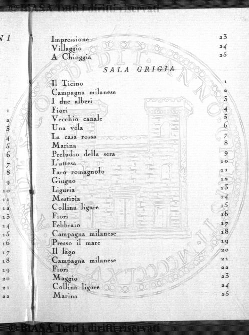 Impressione 23
Villaggio 24
A Chioggia 25
SALA GRIGIA
Il Ticino 1
Campagna milanese 2
I due alberi 3
Fiori 4
Vecchio canale 5
Una vela 6
La casa rossa 7
Marina 8
Preludio della sera 9
L'attesa 10
Faro romagnolo 11
Giugno 12
Liguria 13
Mestizia 14
Collina ligure 15
Fiori 16
Febbraio 17
Campagna milanese 18
Presso il mare 19
Il lago 20
Campagna milanese 21
Fiori 22
Maggio 23
Collina ligure 24
Marina 25